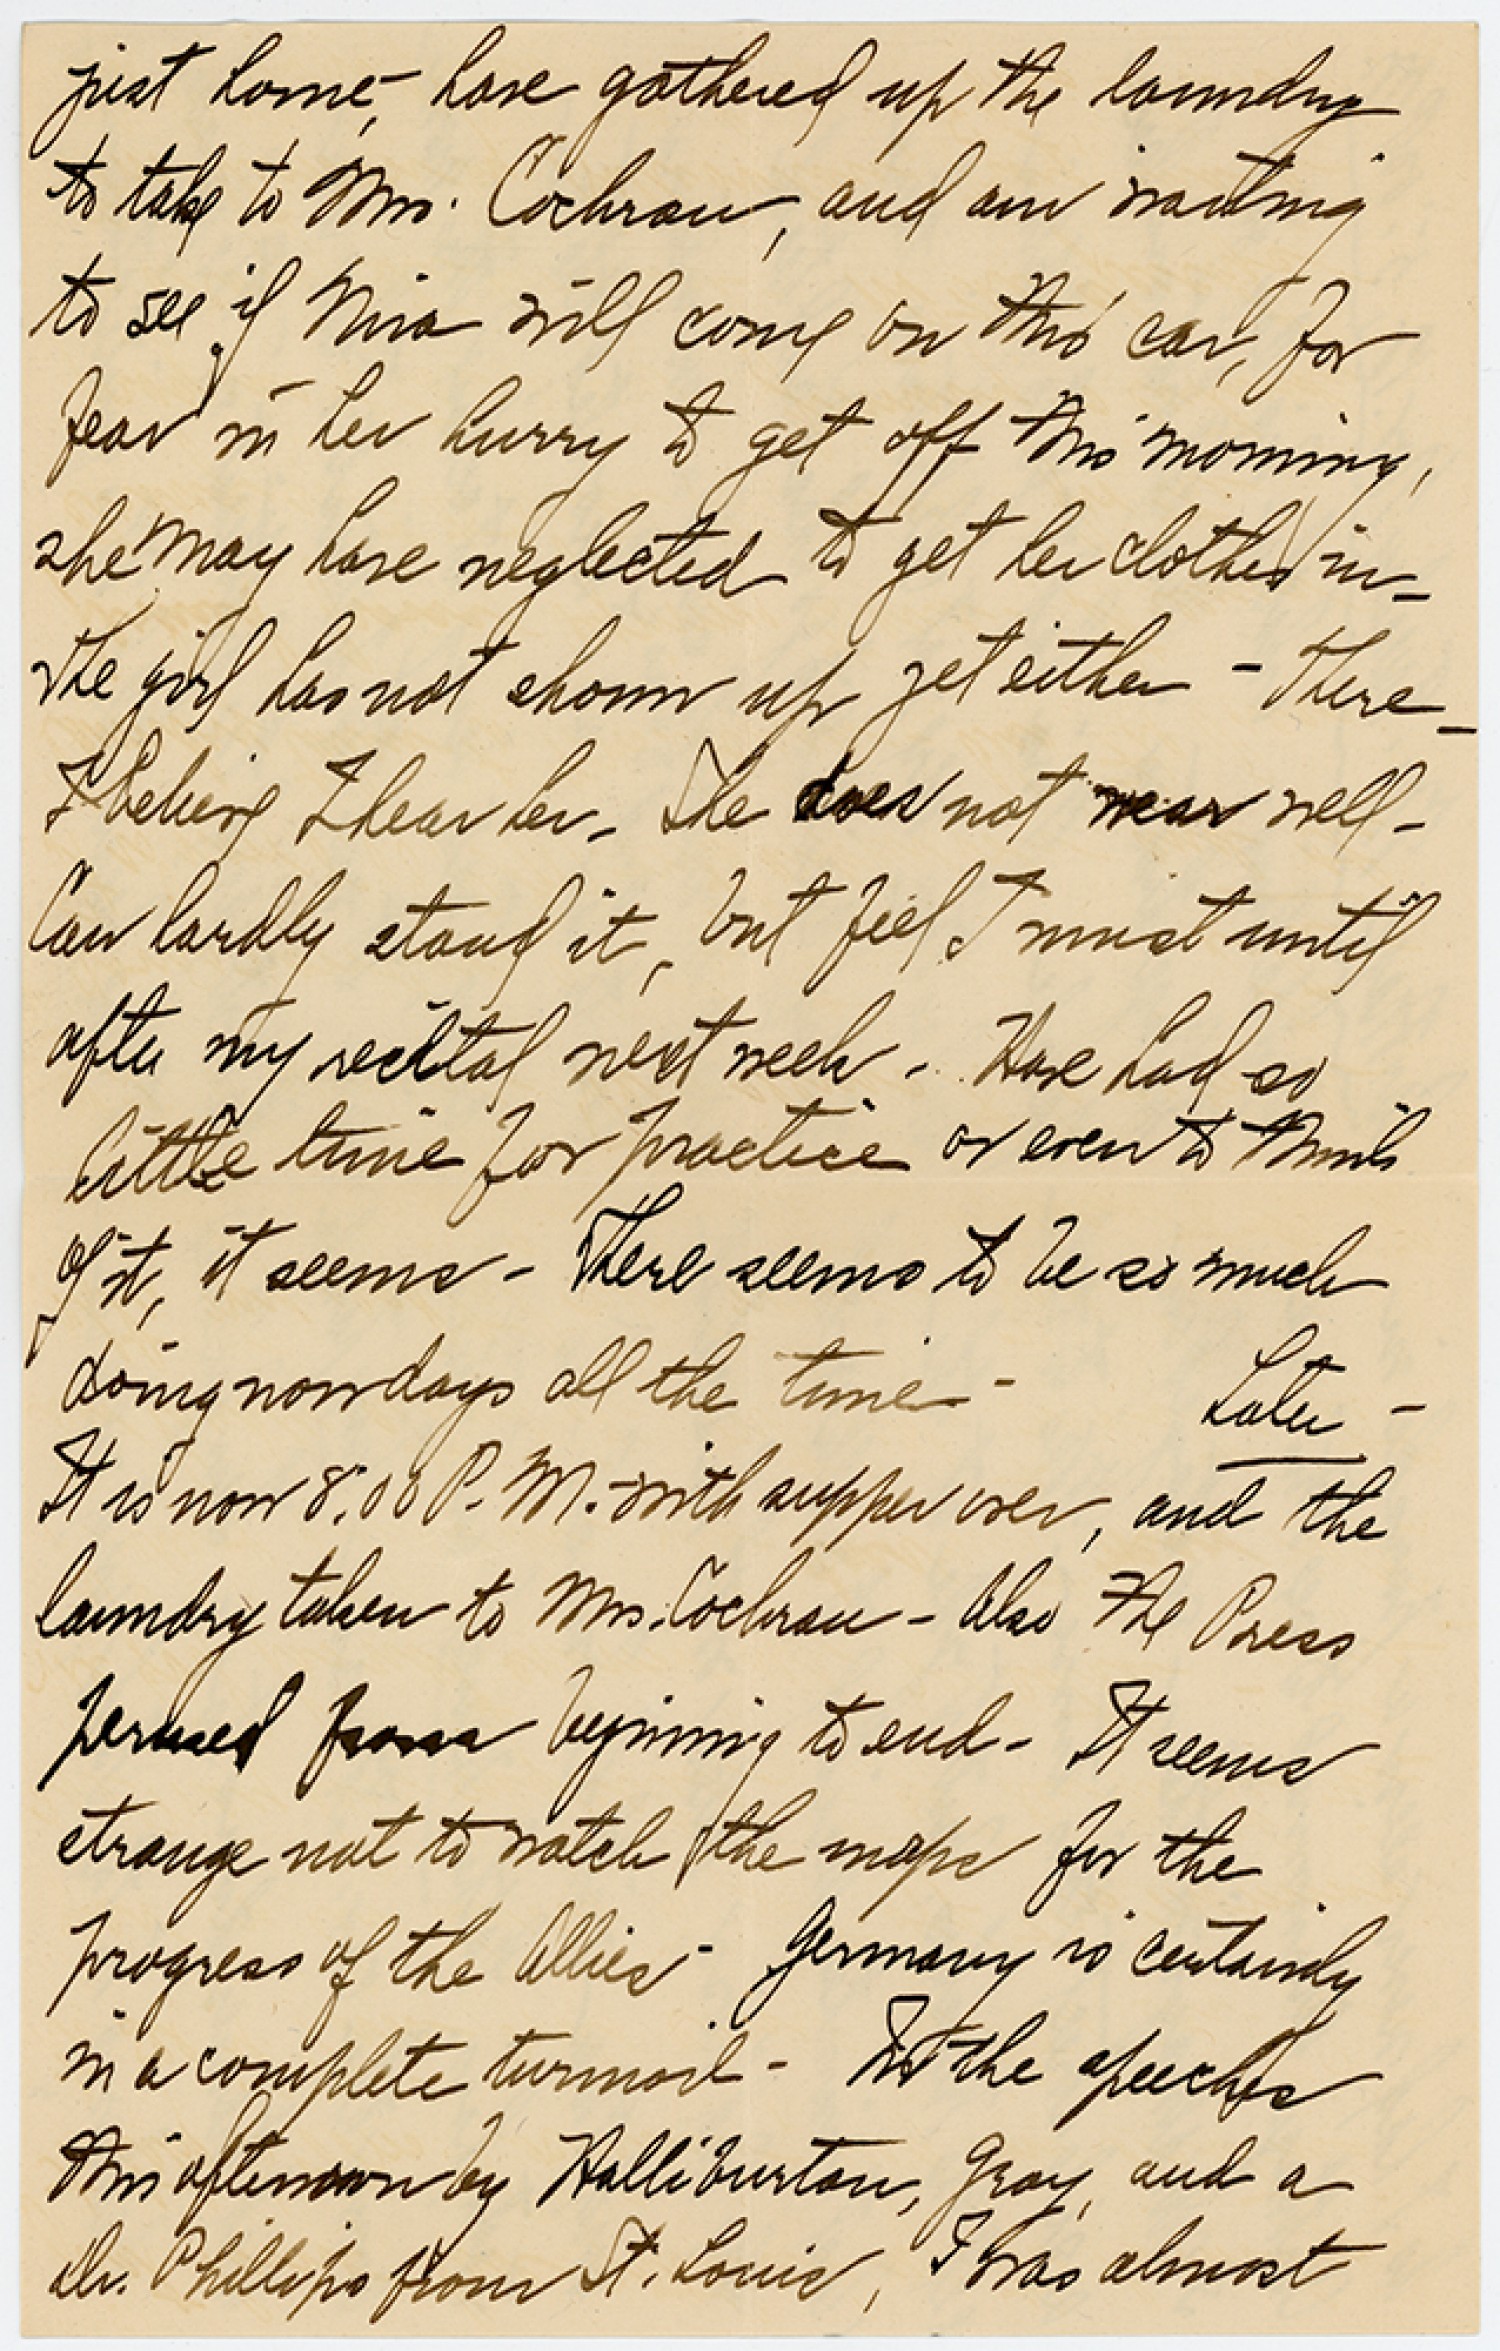 just home,- have gathered up the laundry
to take to Mrs. Cochran, and am waiting
to see if Nina will come on this car, for
fear in her hurry to get off this morning,
she may have neglected to get her clothes in -
The girl has not shown up yet either - There -
I believe I hear her. She does not wear well -
Can hardly stand it, but feel I must until
after my recital next week -. Have had so
little time for practice or even to think
of it, it seems - There seems to be so much
doing nowdays all the time - Later -
It is now 8:00 P.M. with supper over, and the
laundry taken to Mrs. Cochran - Also the Press
perused from begining to end - It seems
strange not to watch the maps for the
progress of the Allies - Germany is certainly
in a complete turmoil - At the speeches
this afternoon by Halliburton, Gray, and a
Dr. Phillips from St. Louis, I was almost